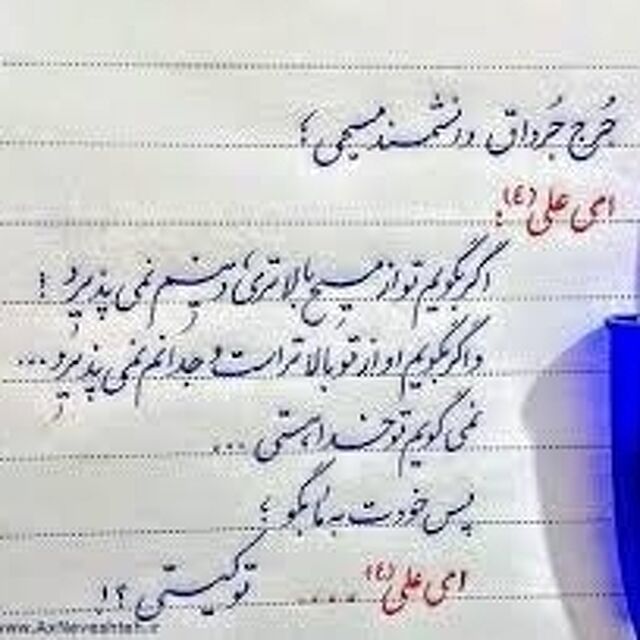 جُرج جُرداق دانشمند مسیحی ؛
ای علی (ع) ؛
اگر بگویم تو از مسیح بالاتری، دینم نمی پذیرد !
و اگر بگویم او از تو بالاتر است وجدانم نمی پذیرد ...
نمی گویم تو خدا هستی ...
پس خودت به ما بگو ؛
ای علی (ع) .... تو کیستی ؟!
www.AxNeveshteh.ir